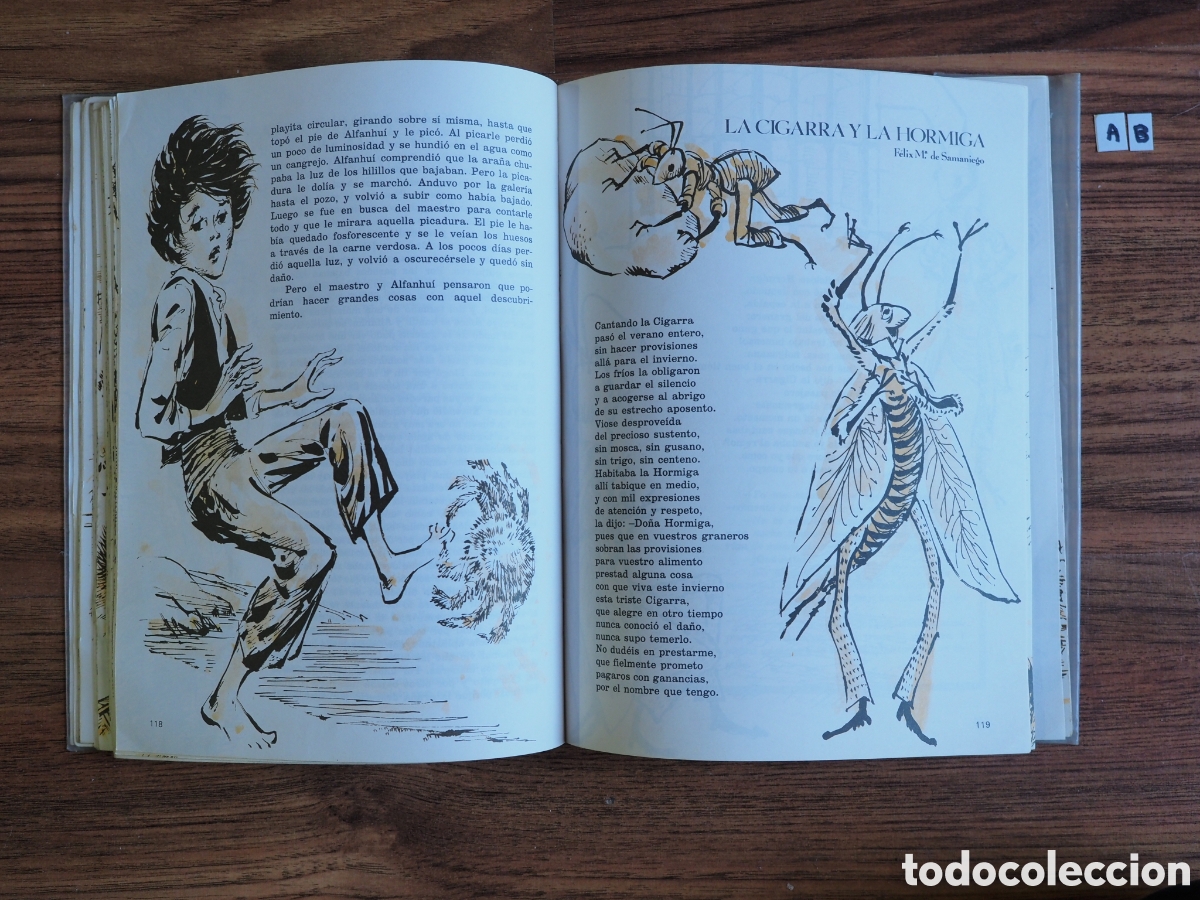 playita circular, girando sobre sí misma, hasta que
topó el pie de Alfanhuí y le picó. Al picarle perdió
un poco de luminosidad y se hundió en el agua como
un cangrejo. Alfanhuí comprendió que la araña chu-
paba la luz de los hilillos que bajaban. Pero la pica-
dura le dolía y se marchó. Anduvo por la galería
hasta el pozo, y volvió a subir como había bajado.
Luego se fue en busca del maestro para contarle
todo y que le mirara aquella picadura. El pie le ha-
bía quedado fosforescente y se le veían los huesos
a través de la carne verdosa. A los pocos días per-
dió aquella luz, y volvió a oscurecérsele y quedó sin
daño.
Pero el maestro y Alfanhuí pensaron que po-
drían hacer grandes cosas con aquel descubri-
miento.
118
LA CIGARRA Y LA HORMIGA
Felix Mª de Samaniego
Cantando la Cigarra
pasó el verano entero,
sin hacer provisiones
allá para el invierno.
Los fríos la obligaron
a guardar el silencio
y a acogerse al abrigo
de su estrecho aposento.
Viose desproveída
del precioso sustento,
sin mosca, sin gusano,
sin trigo, sin centeno.
Habitaba la Hormiga
allí tabique en medio,
y con mil expresiones
de atención y respeto,
la dijo: –Doña Hormiga,
pues que en vuestros graneros
sobran las provisiones
para vuestro alimento
prestad alguna cosa
con que viva este invierno
esta triste Cigarra,
que alegre en otro tiempo
nunca conoció el daño,
nunca supo temerlo.
No dudéis en prestarme,
que fielmente prometo
pagaros con ganancias,
por el nombre que tengo.
119
A B
todocoleccion